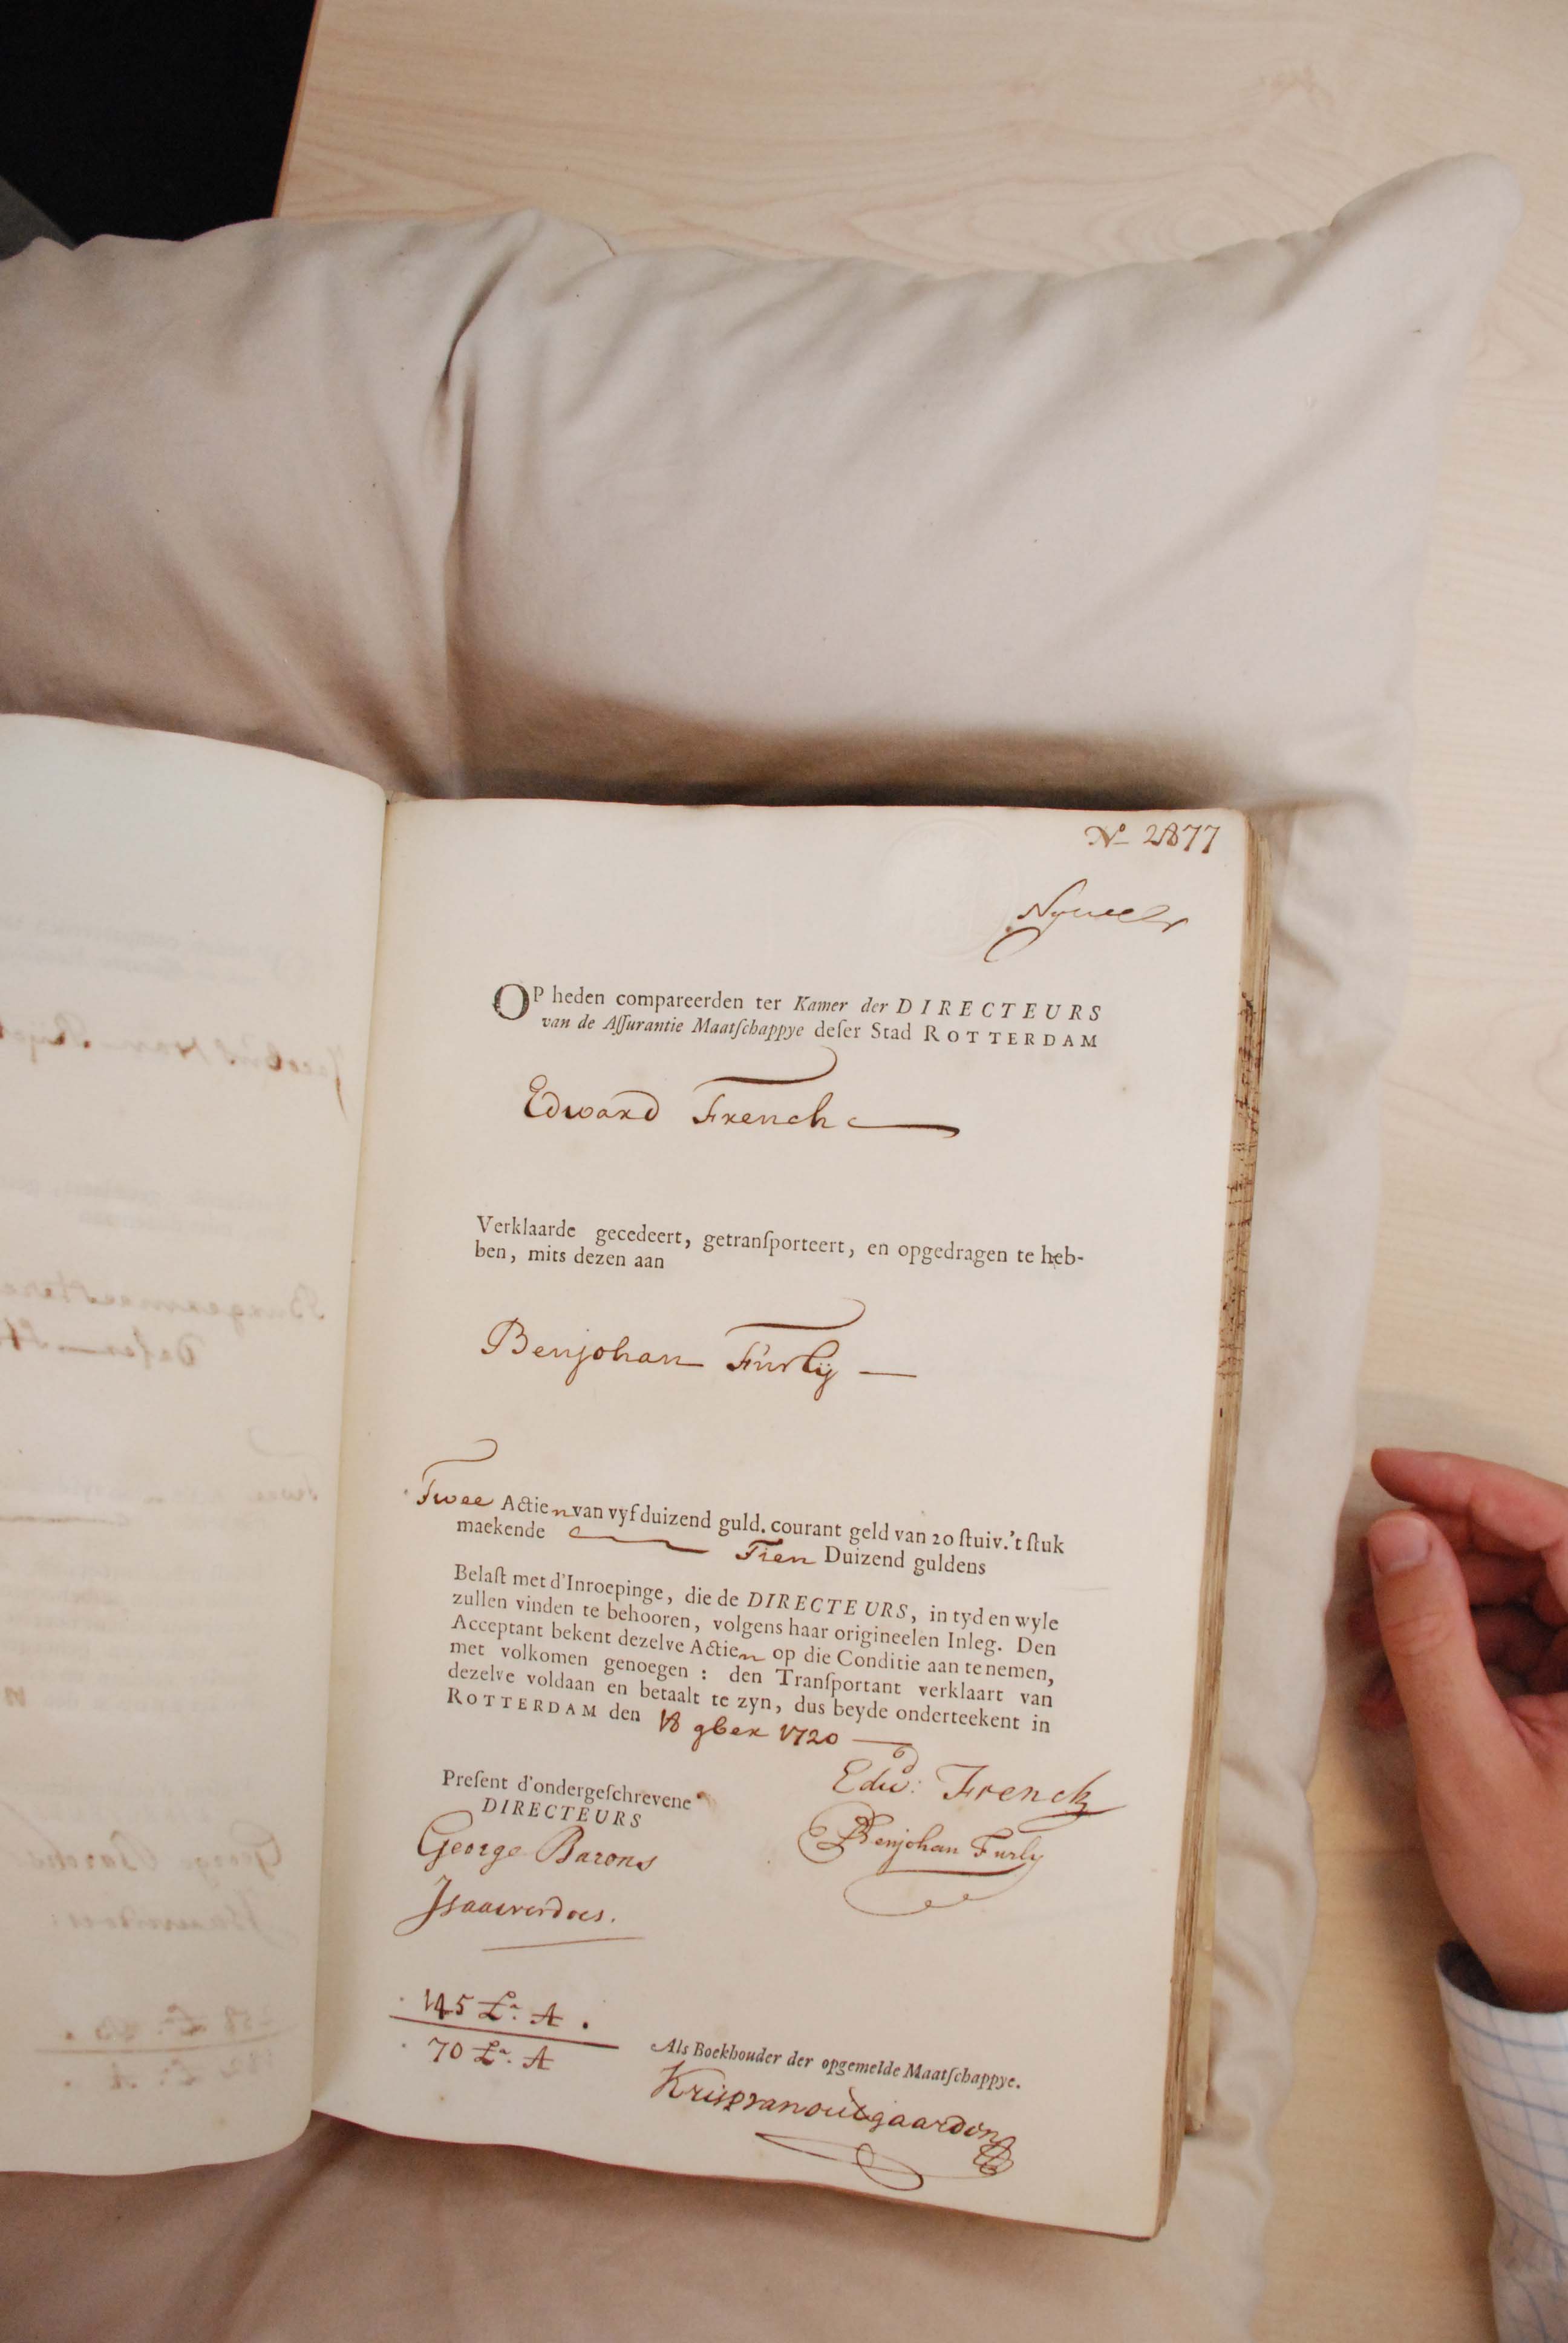 No 2877
OP heden compareerden ter Kamer der DIRECTEURS
van de Aſſurantie Maatſchappye deſer Stad ROTTERDAM
Edward French
Verklaarde gecedeert, getranſporteert, en opgedragen te heb-
ben, mits dezen aan
Benjohan Furlij
Twee Actien van vyfduizend guld. courant geld van 20 ſtuiv. 't ſtuk
maekende Tien Duizend guldens
Belaſt met d'Inroepinge, die de DIRECTEURS, in tyd en wyle
zullen vinden te behooren, volgens haar origineelen Inleg. Den
Acceptant bekent dezelve Actien op die Conditie aan te nemen,
met volkomen genoegen : den Tranſportant verklaart van
dezelve voldaan en betaalt te zyn, dus beyde onderteekent in
ROTTERDAM den 18 9ber 1720
Edw: French
Benjohan Furly
Preſent d'ondergeſchrevene
DIRECTEURS
George Barons
Isaacverdoes.
145 La. A.
70 La. A
Als Boekhouder der opgemelde Maatſchappye.